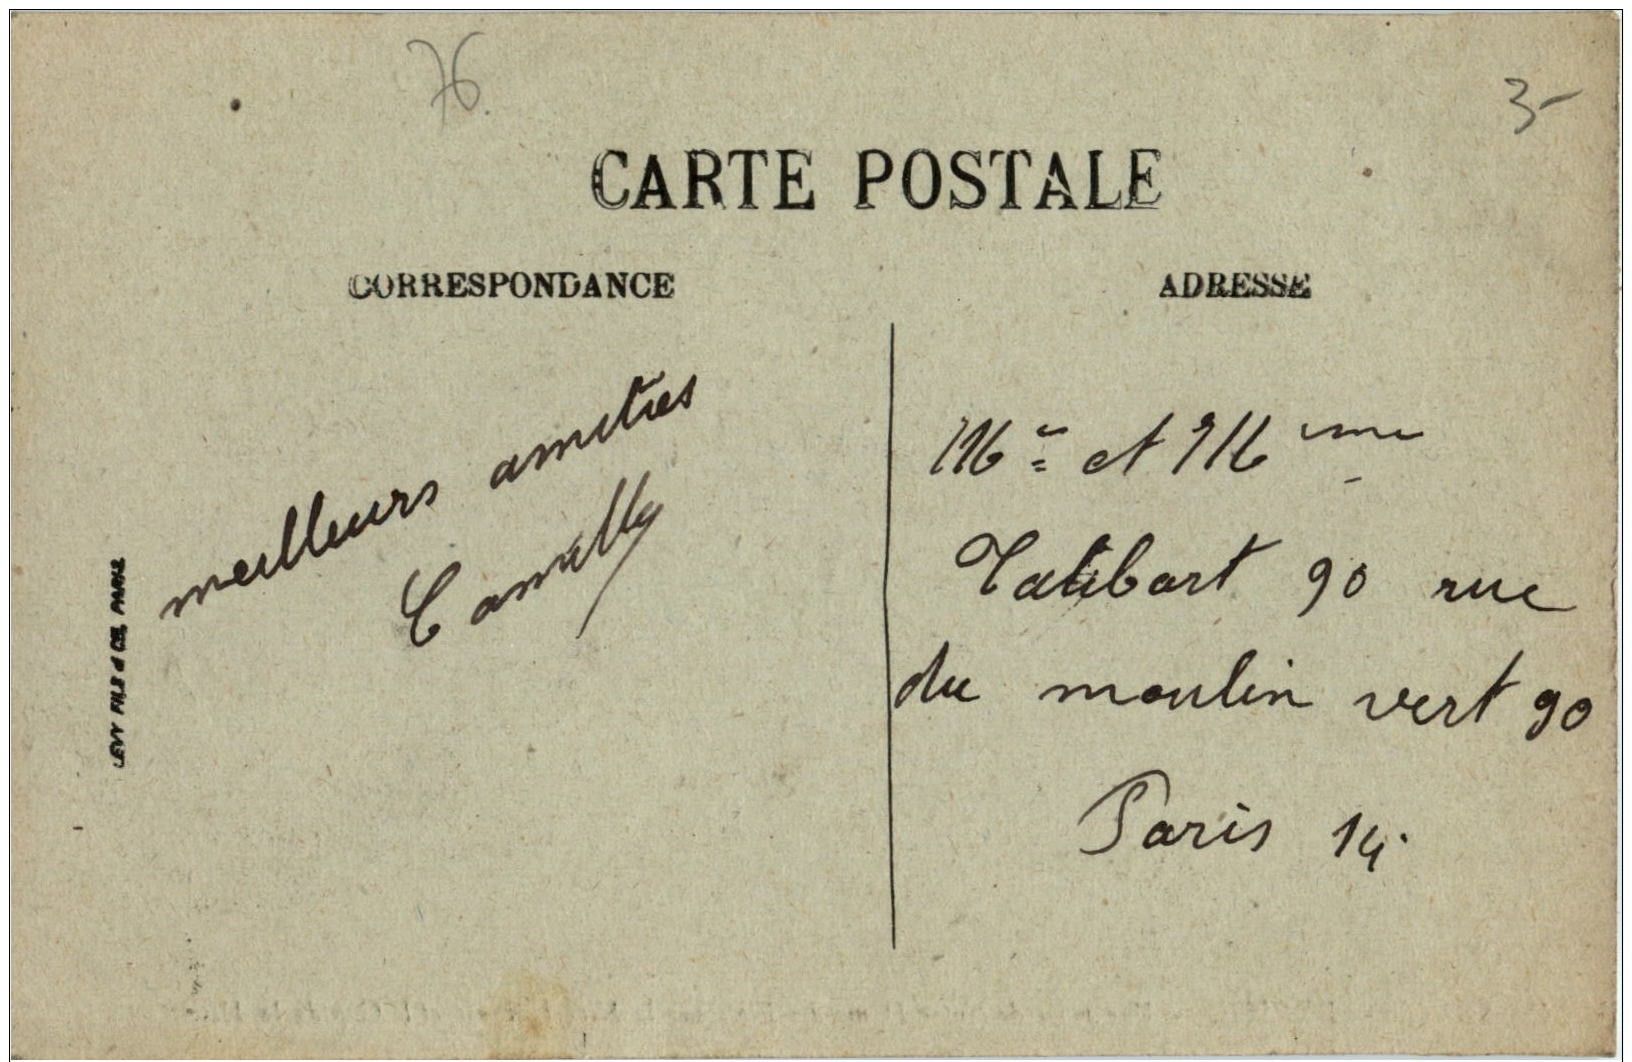 76.
3-
CARTE POSTALE
CORRESPONDANCE
ADRESSE
meilleurs amities
Camilly
LEVY FILS & CIE, PARIS
Mr et Mme
Talibart 90 rue
du moulin vert 90
Paris 14.